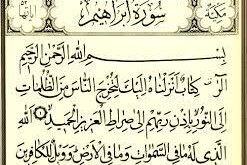 سُورَةُ إِبْرَاهِيمَ
بِسْمِ اللَّهِ الرَّحْمَٰنِ الرَّحِيمِ
الٓر كِتَابٌ أَنزَلْنَاهُ إِلَيْكَ لِتُخْرِجَ النَّاسَ مِنَ الظُّلُمَاتِ
إِلَى النُّورِ بِإِذْنِ رَبِّهِمْ إِلَىٰ صِرَاطِ الْعَزِيزِ الْحَمِيدِ ۝١ اللَّهِ
الَّذِي لَهُ مَا فِي السَّمَاوَاتِ وَمَا فِي الْأَرْضِ وَوَيْلٌ لِّلْكَافِرِينَ